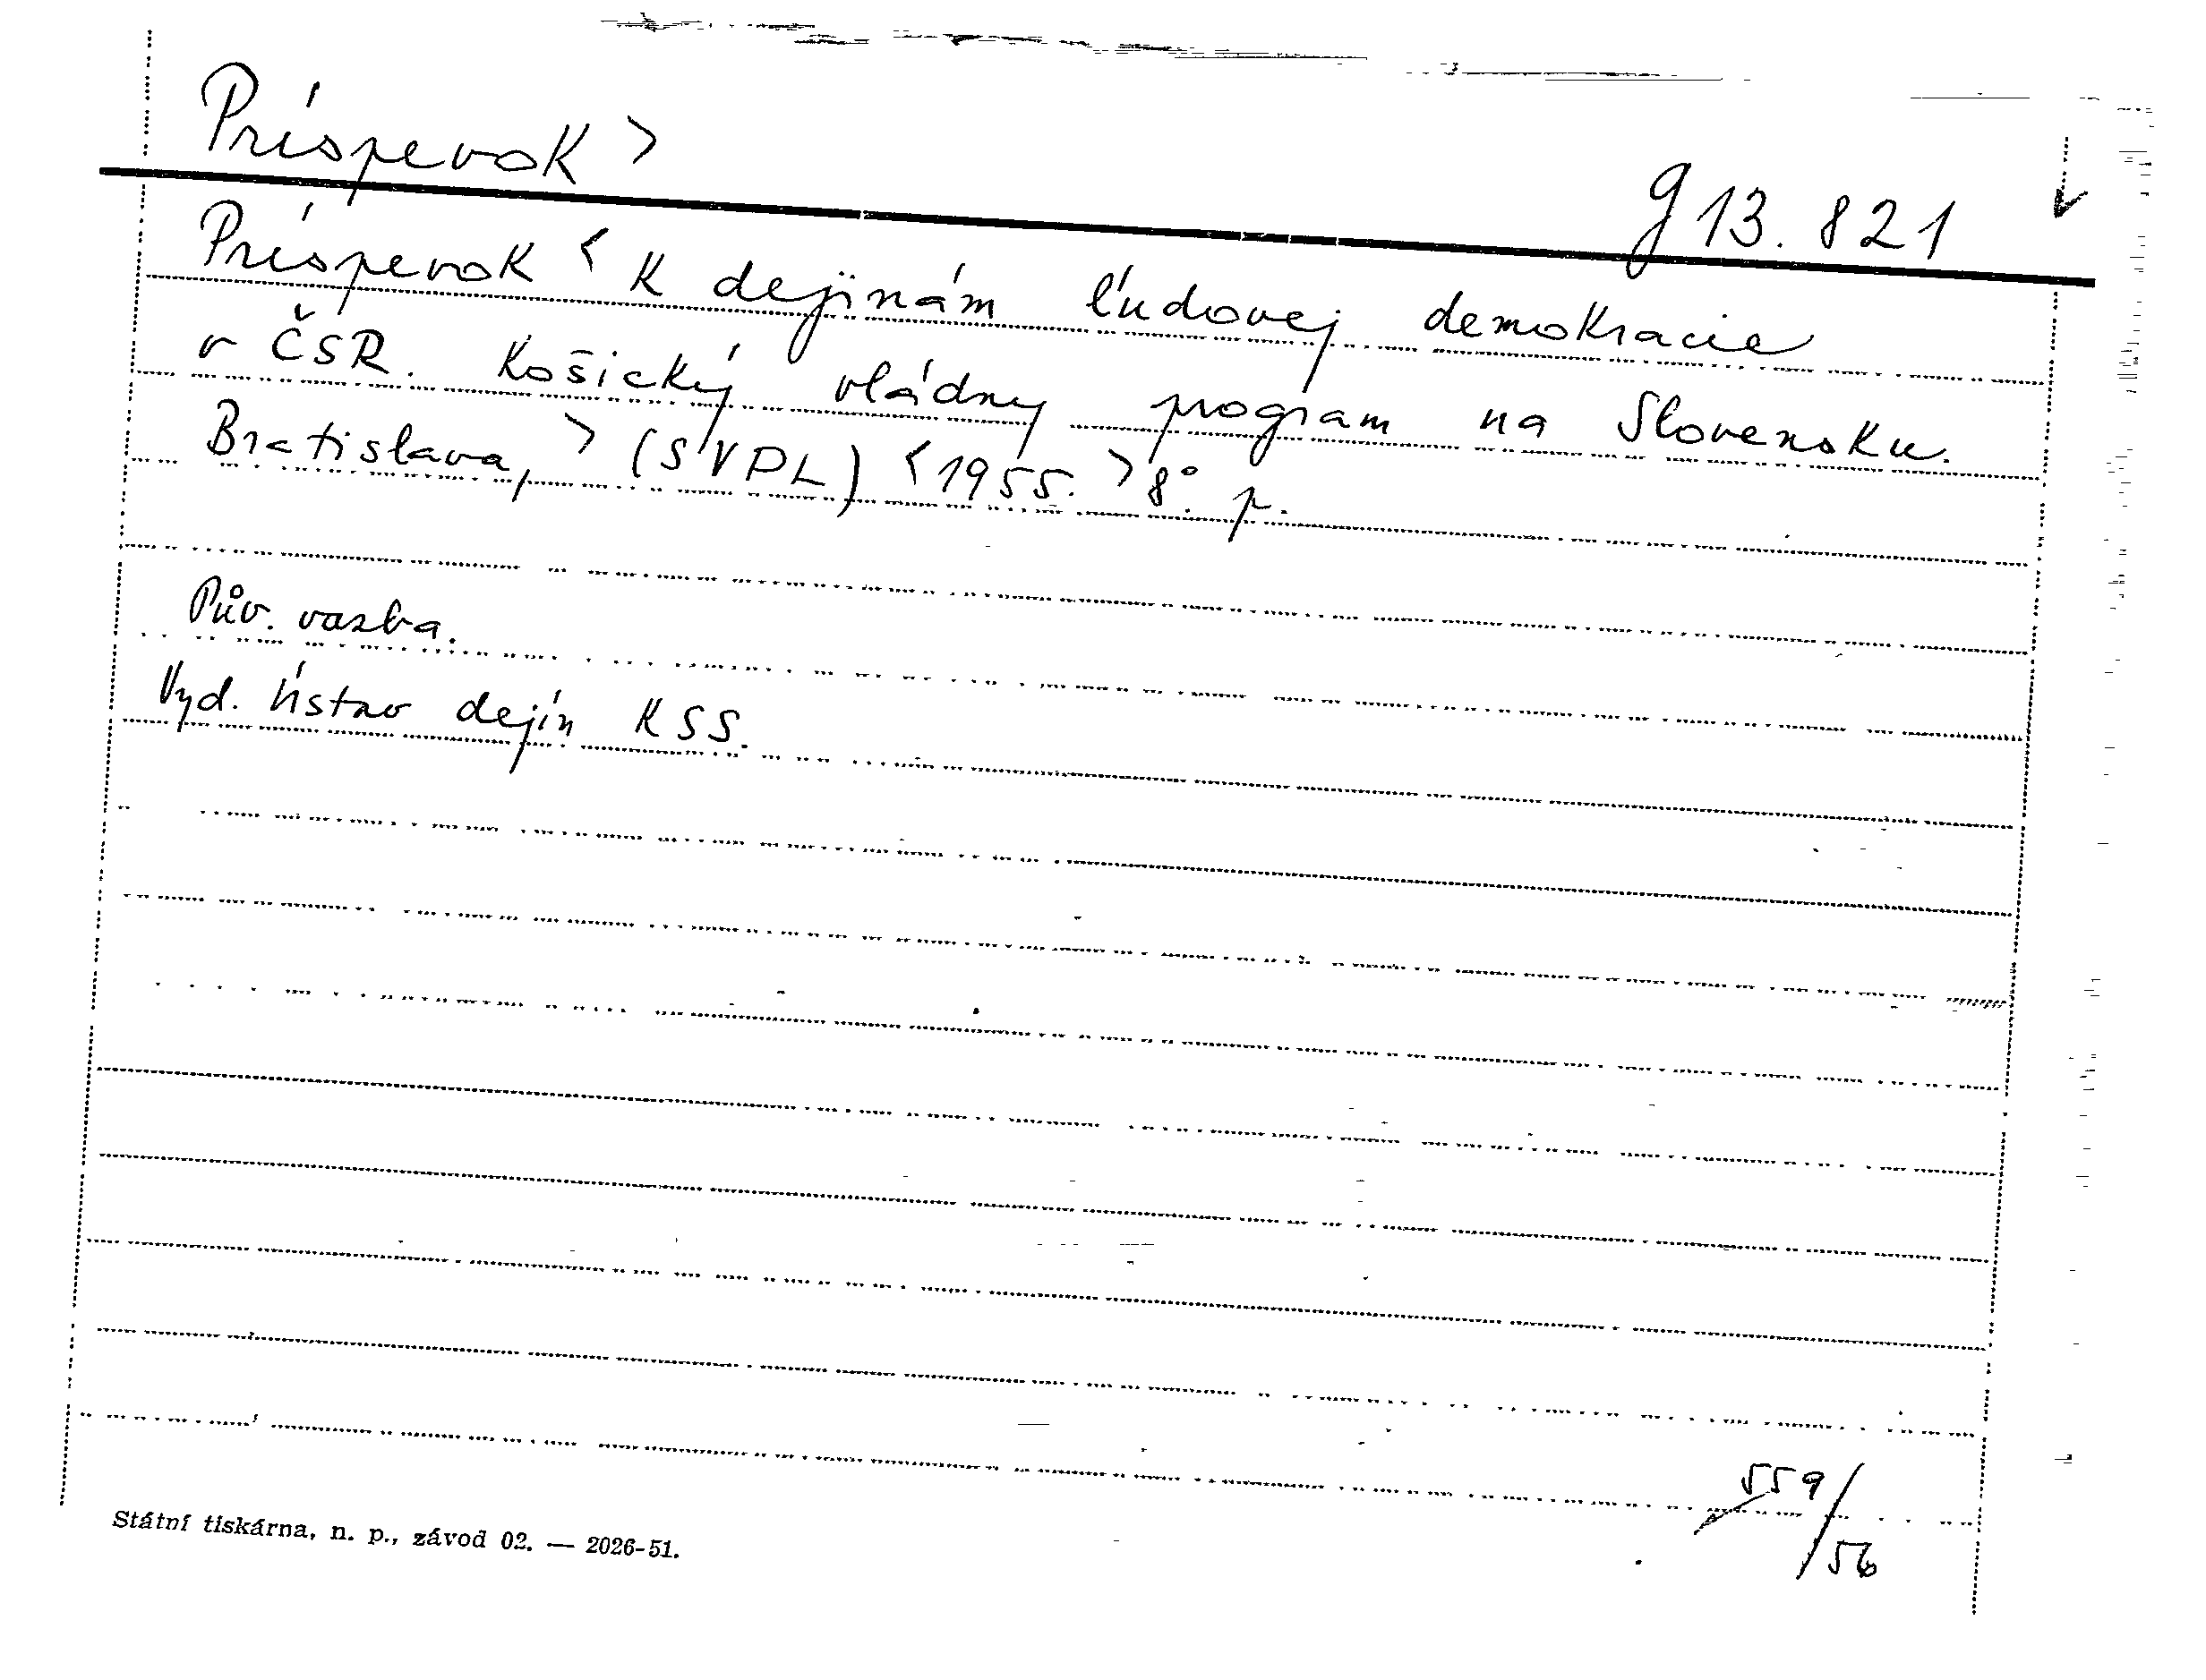 Príspevok >
g 13. 821
Príspevok < k dejinám ľudovej demokracie
v ČSR. Košický vládny program na Slovensku.
Bratislava, > (SVPL) < 1955. > 8°. p.
Pův. vazba.
Vyd. Ústav dejín KSS.
559/56
Státní tiskárna, n. p., závod 02. — 2026-51.